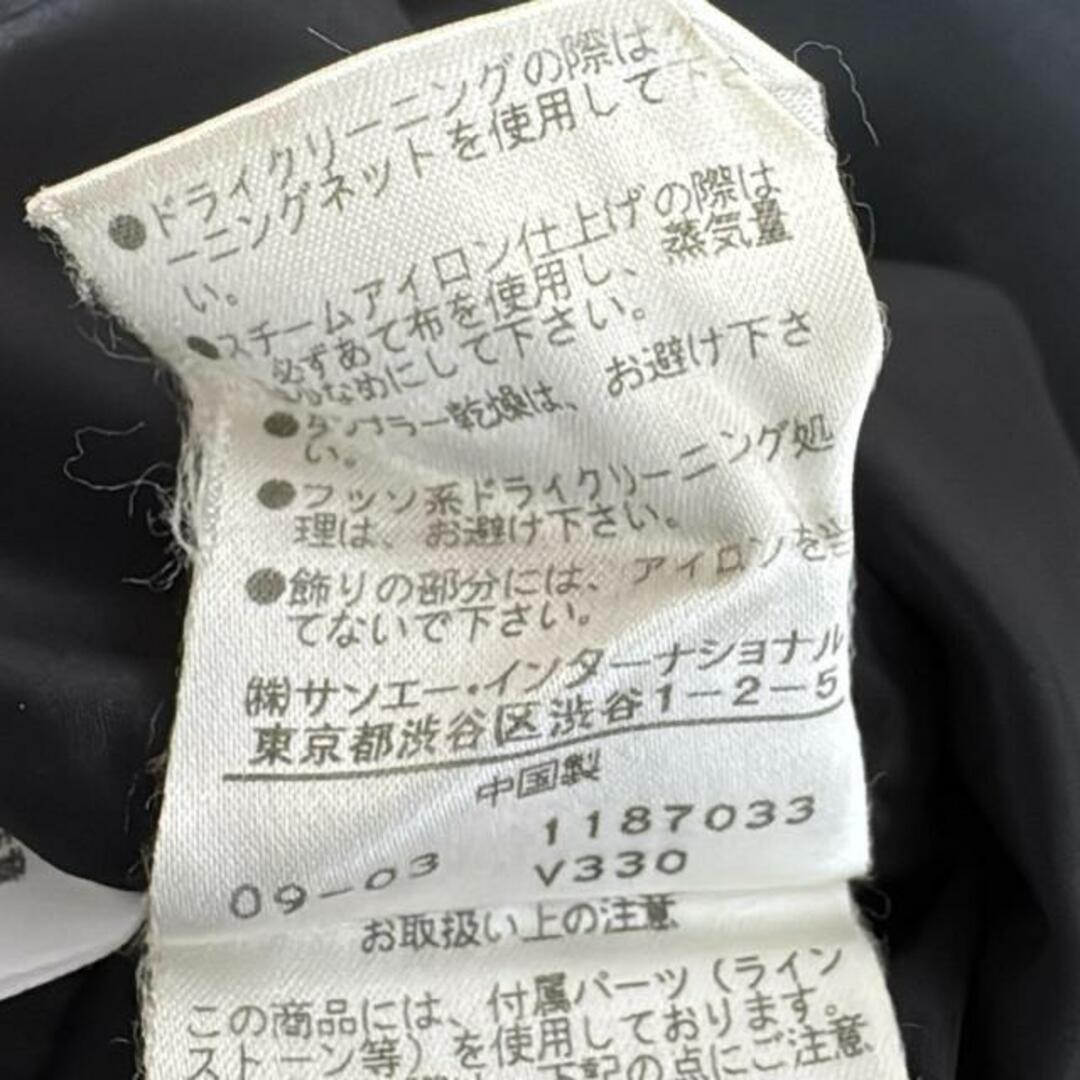 ●ドライクリーニングの際は
ーニングネットを使用して下
い。
●スチームアイロン仕上げの際は
必ずあて布を使用し、蒸気量
少なめにして下さい。
●タンブラー乾燥は、お避け下さ
い。
●フッソ系ドライクリーニング処
理は、お避け下さい。
●飾りの部分には、アイロンを当
てないで下さい。
㈱サンエー・インターナショナル
東京都渋谷区渋谷1-2-5
中国製
1187033
09-03 V330
お取扱い上の注意
この商品には、付属パーツ（ライン
ストーン等）を使用しております。
下記の点にご注意